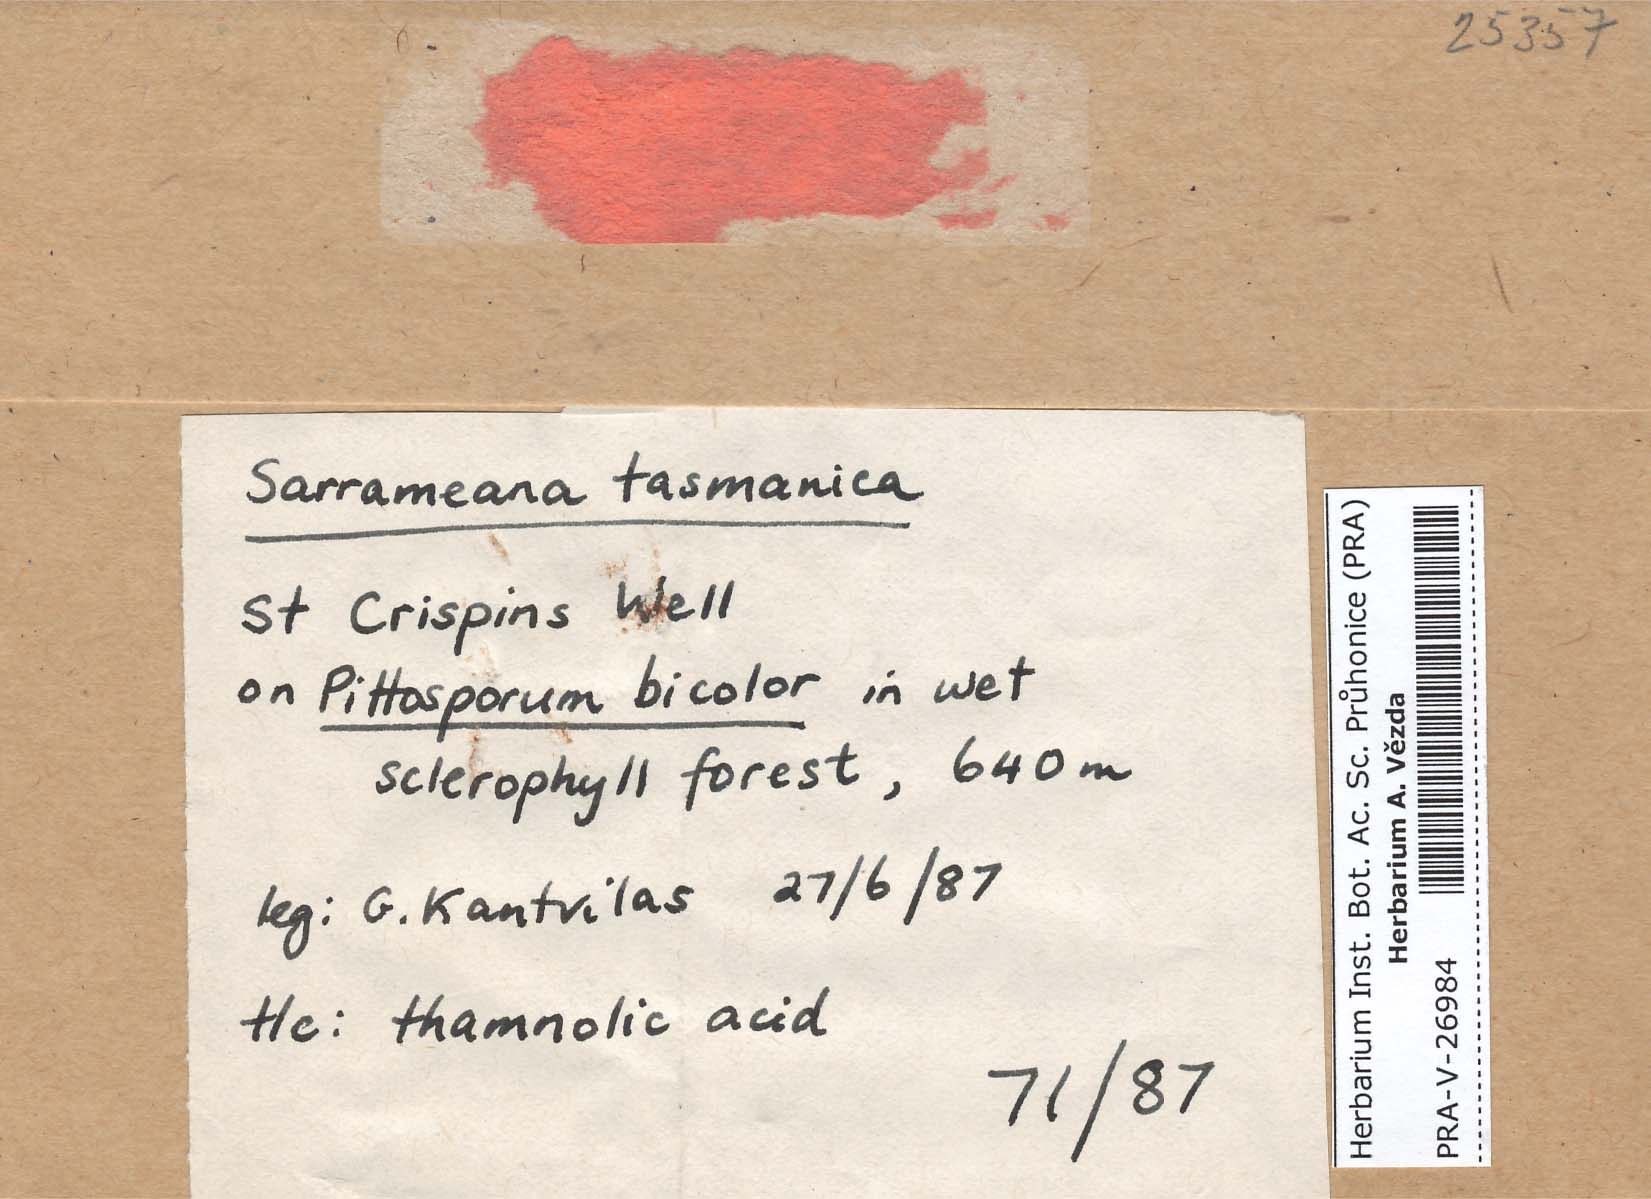 25357
Sarrameana tasmanica
St Crispins Well
on Pittosporum bicolor in wet
sclerophyll forest, 640m
leg: G. Kantvilas 27/6/87
tlc: thamnolic acid
71/87
Herbarium Inst. Bot. Ac. Sc. Průhonice (PRA)
Herbarium A. Vězda
PRA-V-26984